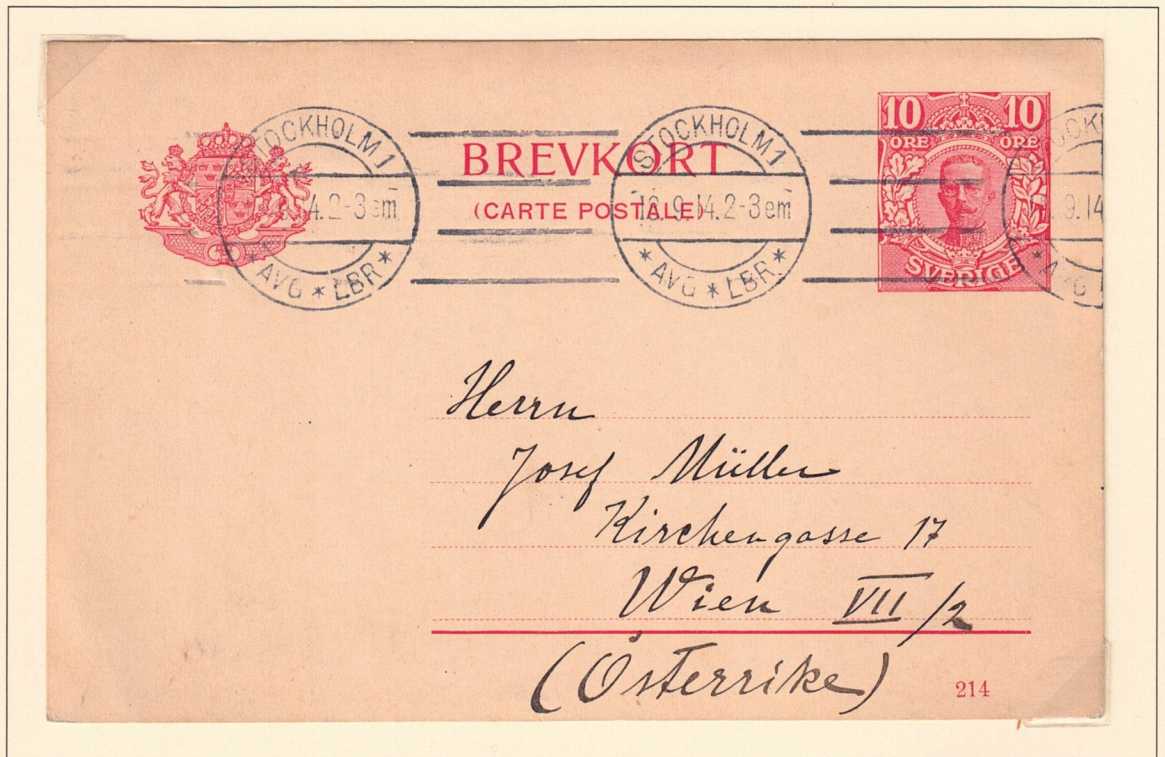 STOCKHOLM 1
4.2-3em
*AVG*LBR*
BREVKORT
(CARTE POSTALE)
STOCKHOLM 1
9.14.2-3em
*AVG*LBR*
10 10
ÖRE ÖRE
SVERIGE
9.14
Herrn
Josef Müller
Kirchengasse 17
Wien VII/2
(Österrike)
214